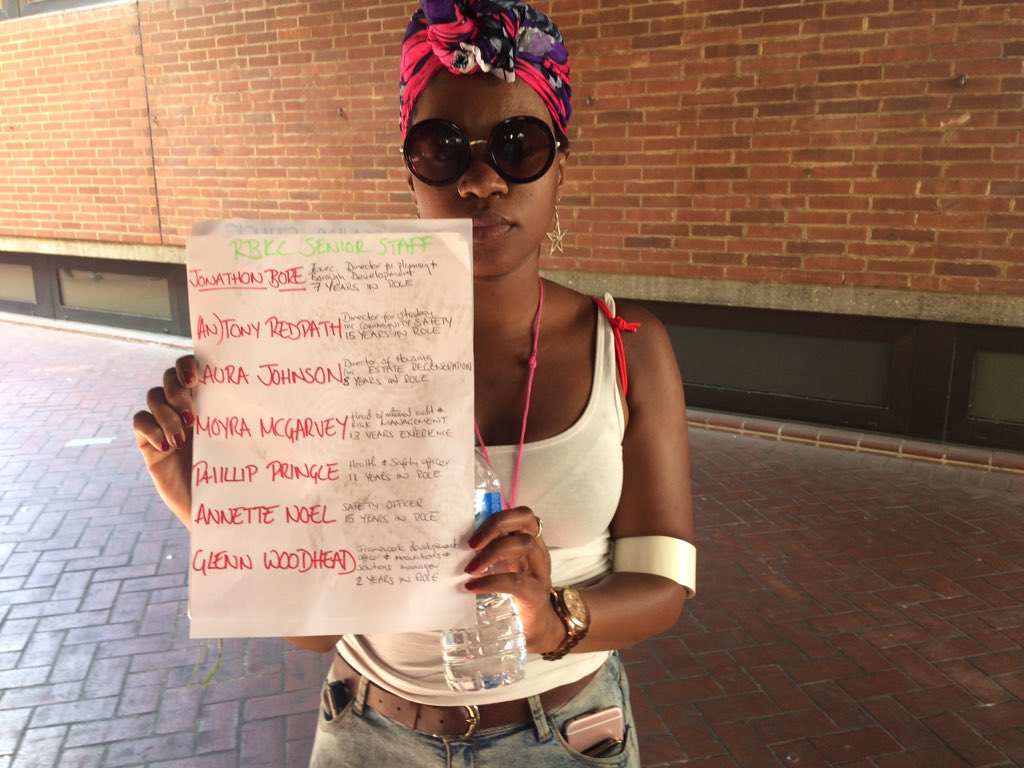 RBKC SENIOR STAFF
JONATHON BORE Exec Director for Planning &
Borough Development
7 YEARS IN ROLE
(AN)TONY REDPATH Director for strategy
inc community SAFETY
15 YEARS IN ROLE
LAURA JOHNSON Director of Housing
inc ESTATE REGENERATION
8 YEARS IN ROLE
MOYRA MCGARVEY Head of internal audit &
RISK MANAGEMENT
13 YEARS EXPERIENCE
PHILLIP PRINGLE Health & Safety officer
11 YEARS IN ROLE
ANNETTE NOEL SAFETY OFFICER
15 YEARS IN ROLE
GLENN WOODHEAD Framework development
officer & innovations &
solutions manager
2 YEARS IN ROLE